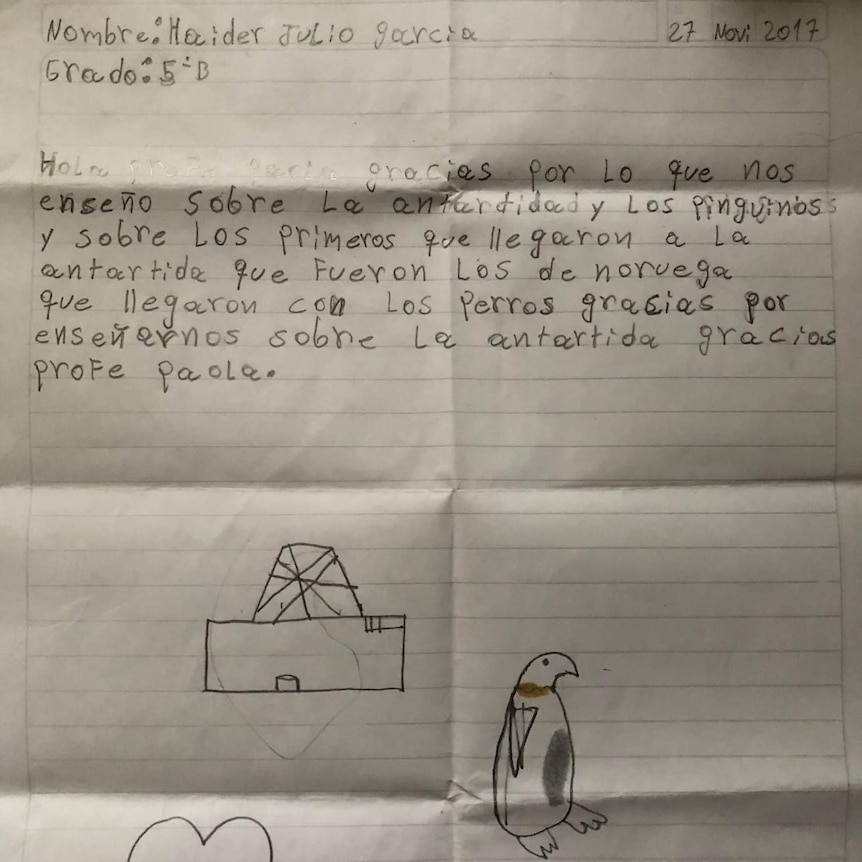 Nombre: Haider JULIO garcia
27 Novi 2017
Grado: 5·B
Hola profe paola gracias por lo que nos
enseño sobre la antartidad y los pinguinoss
y sobre los primeros que llegaron a la
antartida que fueron los de noruega
que llegaron con los perros grasias por
enseñarnos sobre la antartida gracias
profe paola.